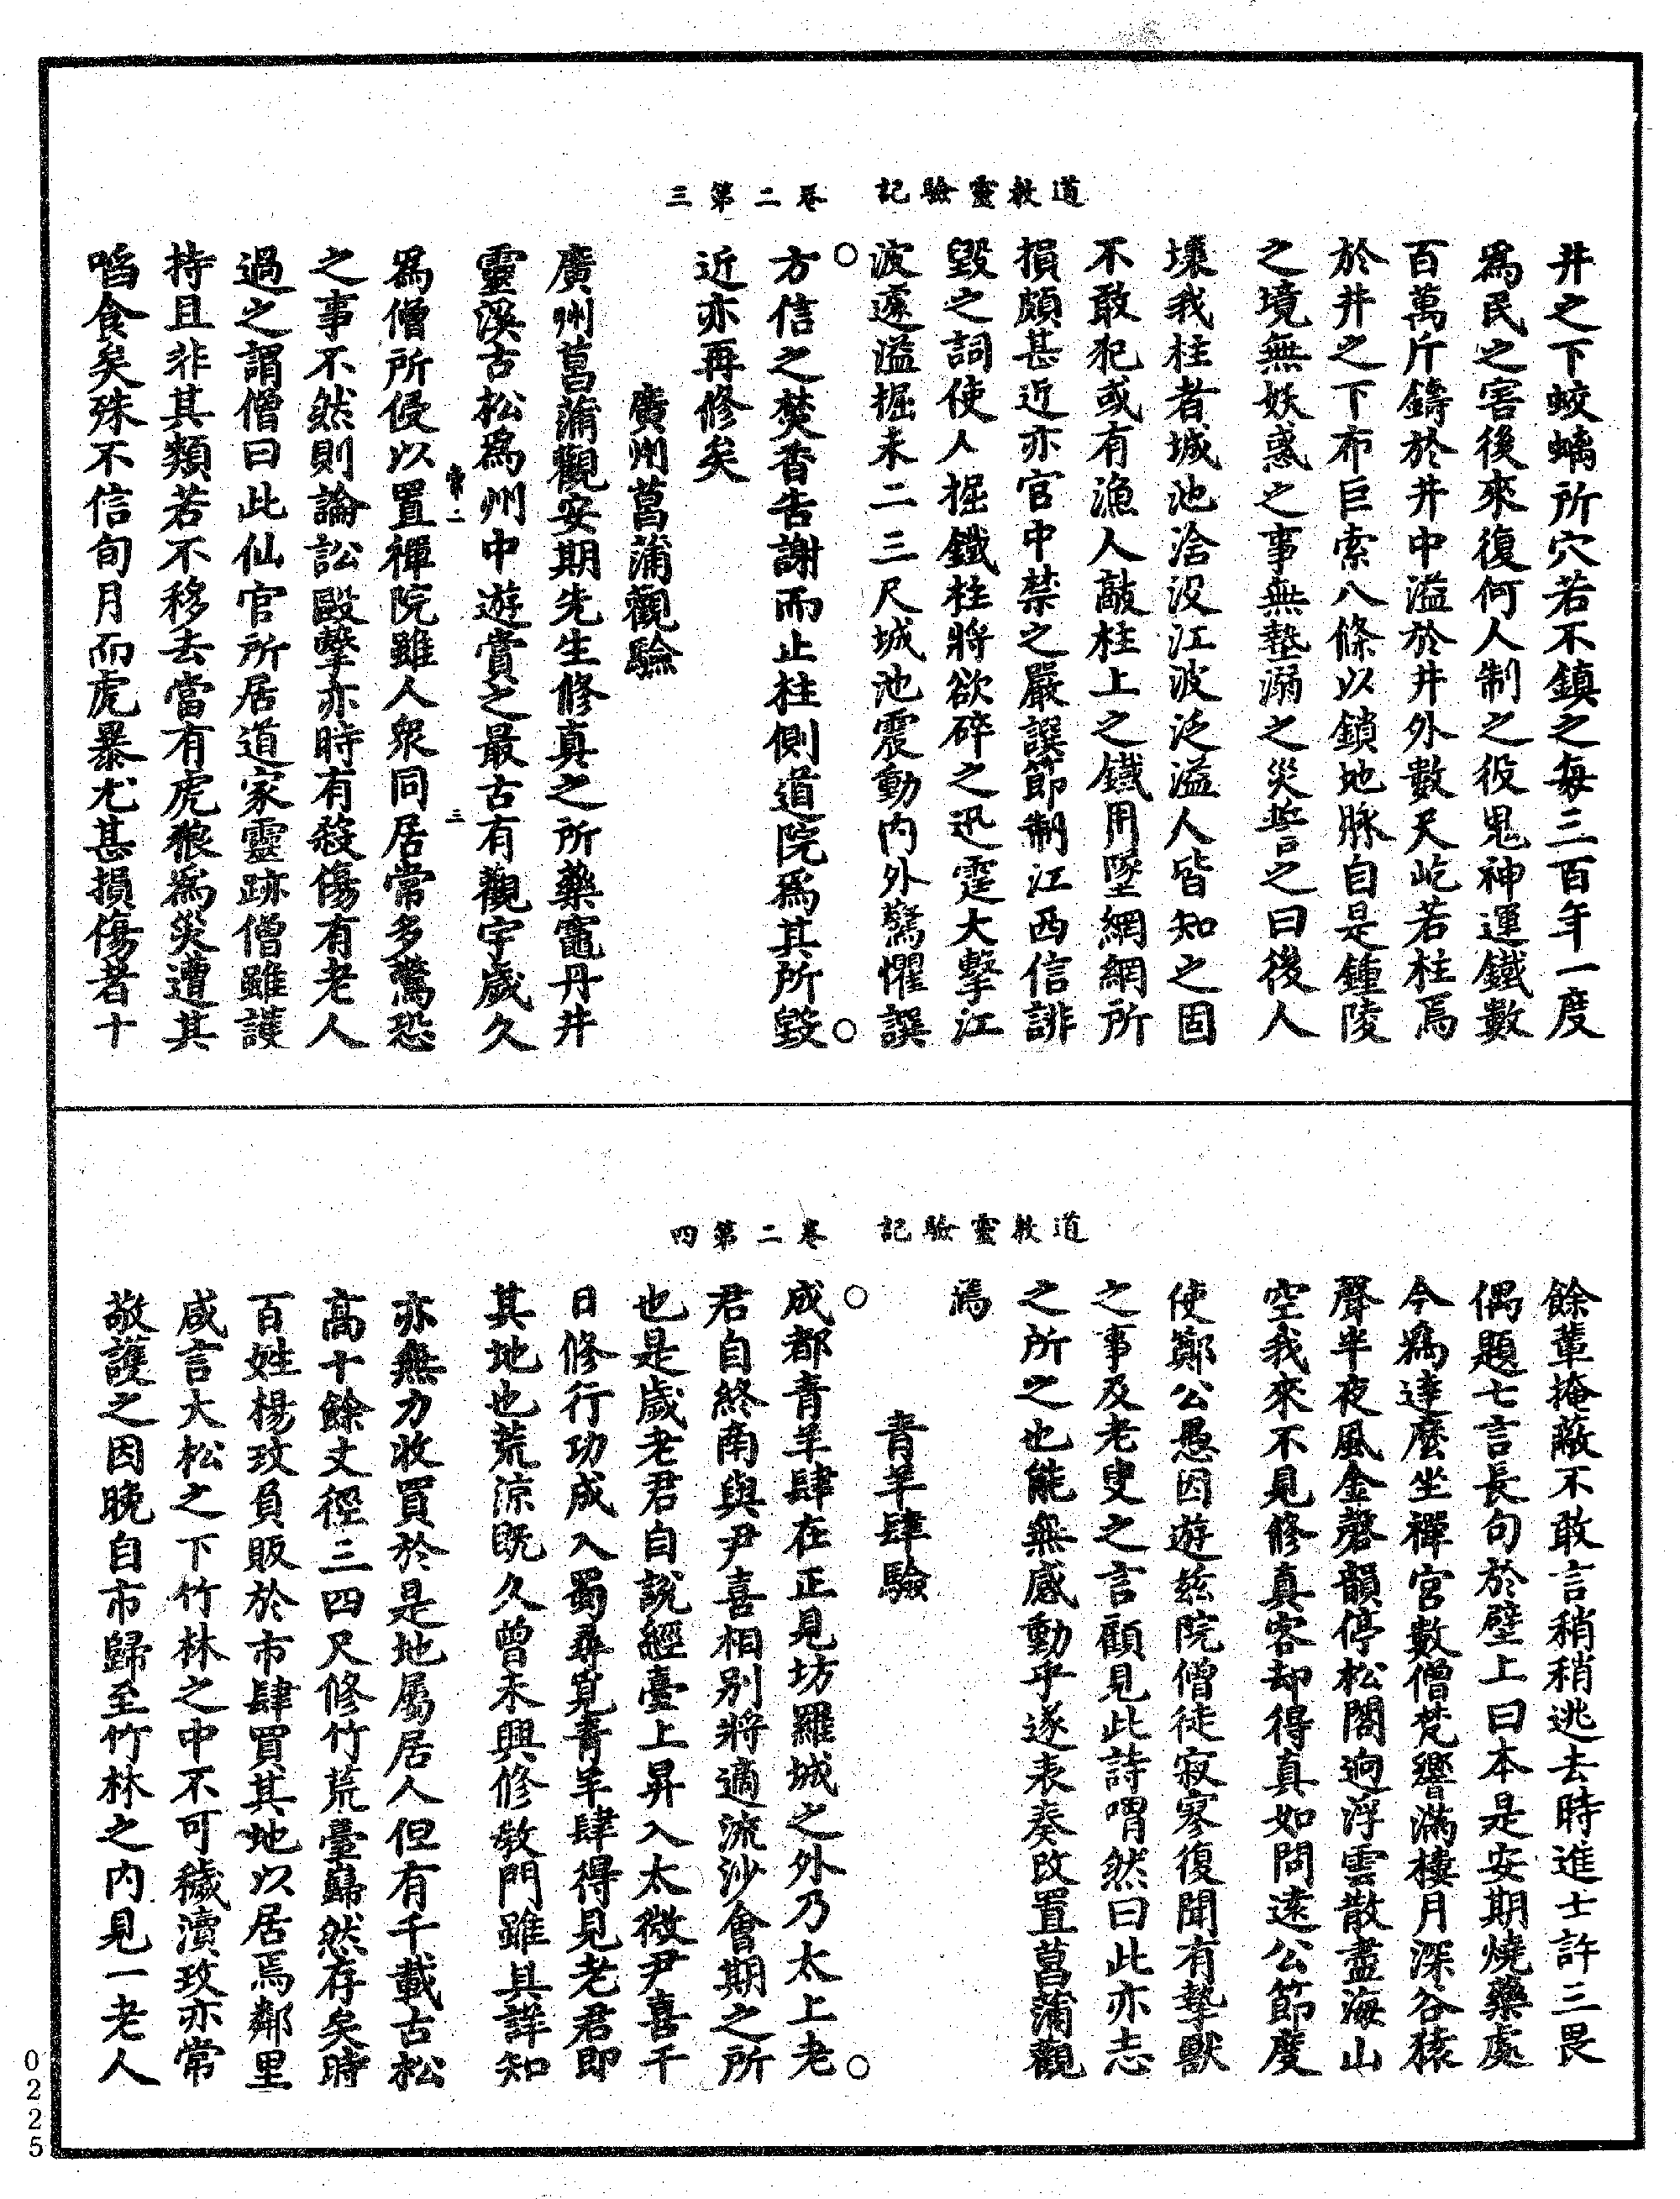 道教靈驗記　卷二第三
井之下蛟螭所穴若不鎮之每三百年一度
爲民之害後來復何人制之役鬼神運鐵數
百萬斤鑄於井中溢於井外數尺屹若柱焉
於井之下布巨索八條以鎖地脉自是鍾陵
之境無妖惑之事無墊溺之災誓之曰後人
壞我柱者城池淪没江波泛溢人皆知之固
不敢犯或有漁人敲柱上之鐵用墜網網所
損頗甚近亦官中禁之嚴譔節制江西信誹
毀之詞使人掘鐵柱將欲碎之迅霆大擊江
波遽溢掘未二三尺城池震動内外驚懼譔
方信之焚香告謝而止柱側道院爲其所毀
近亦再修矣
廣州菖蒲觀驗
廣州菖蒲觀安期先生修真之所藥竈丹井
靈溪古松爲州中遊賞之最古有觀宇歲久
常二　三
爲僧所侵以置禪院雖人衆同居常多驚恐
之事不然則論訟毆擊亦時有殺傷有老人
過之謂僧曰此仙官所居道家靈跡僧雖護
持且非其類若不移去當有虎狼爲災遭其
啗食矣殊不信旬月而虎暴尤甚損傷者十
道教靈驗記　卷二第四
餘輩掩蔽不敢言稍稍逃去時進士許三畏
偶題七言長句於壁上曰本是安期燒藥處
今爲達麼坐禪宫數僧梵響滿棲月深谷猿
聲半夜風金磬韻停松閣迥浮雲散盡海山
空我來不見修真客却得真如問遠公節度
使鄭公愚因遊兹院僧徒寂寥復聞有摯獸
之事及老叟之言顧見此詩喟然曰此亦志
之所之也能無感動乎遂表奏改置菖蒲觀
焉
青羊肆驗
成都青羊肆在正見坊羅城之外乃太上老
君自終南與尹喜相别將適流沙會期之所
也是歲老君自説經臺上昇入太微尹喜千
日修行功成入蜀尋覓青羊肆得見老君即
其地也荒涼既久曾未興修教門雖具詳知
亦無力收買於是地屬居人但有千載古松
高十餘丈徑三四尺修竹荒臺巋然存矣時
百姓楊玫負販於市肆買其地以居焉鄰里
咸言大松之下竹林之中不可穢瀆玫亦常
敬護之因晚自市歸至竹林之内見一老人
0225